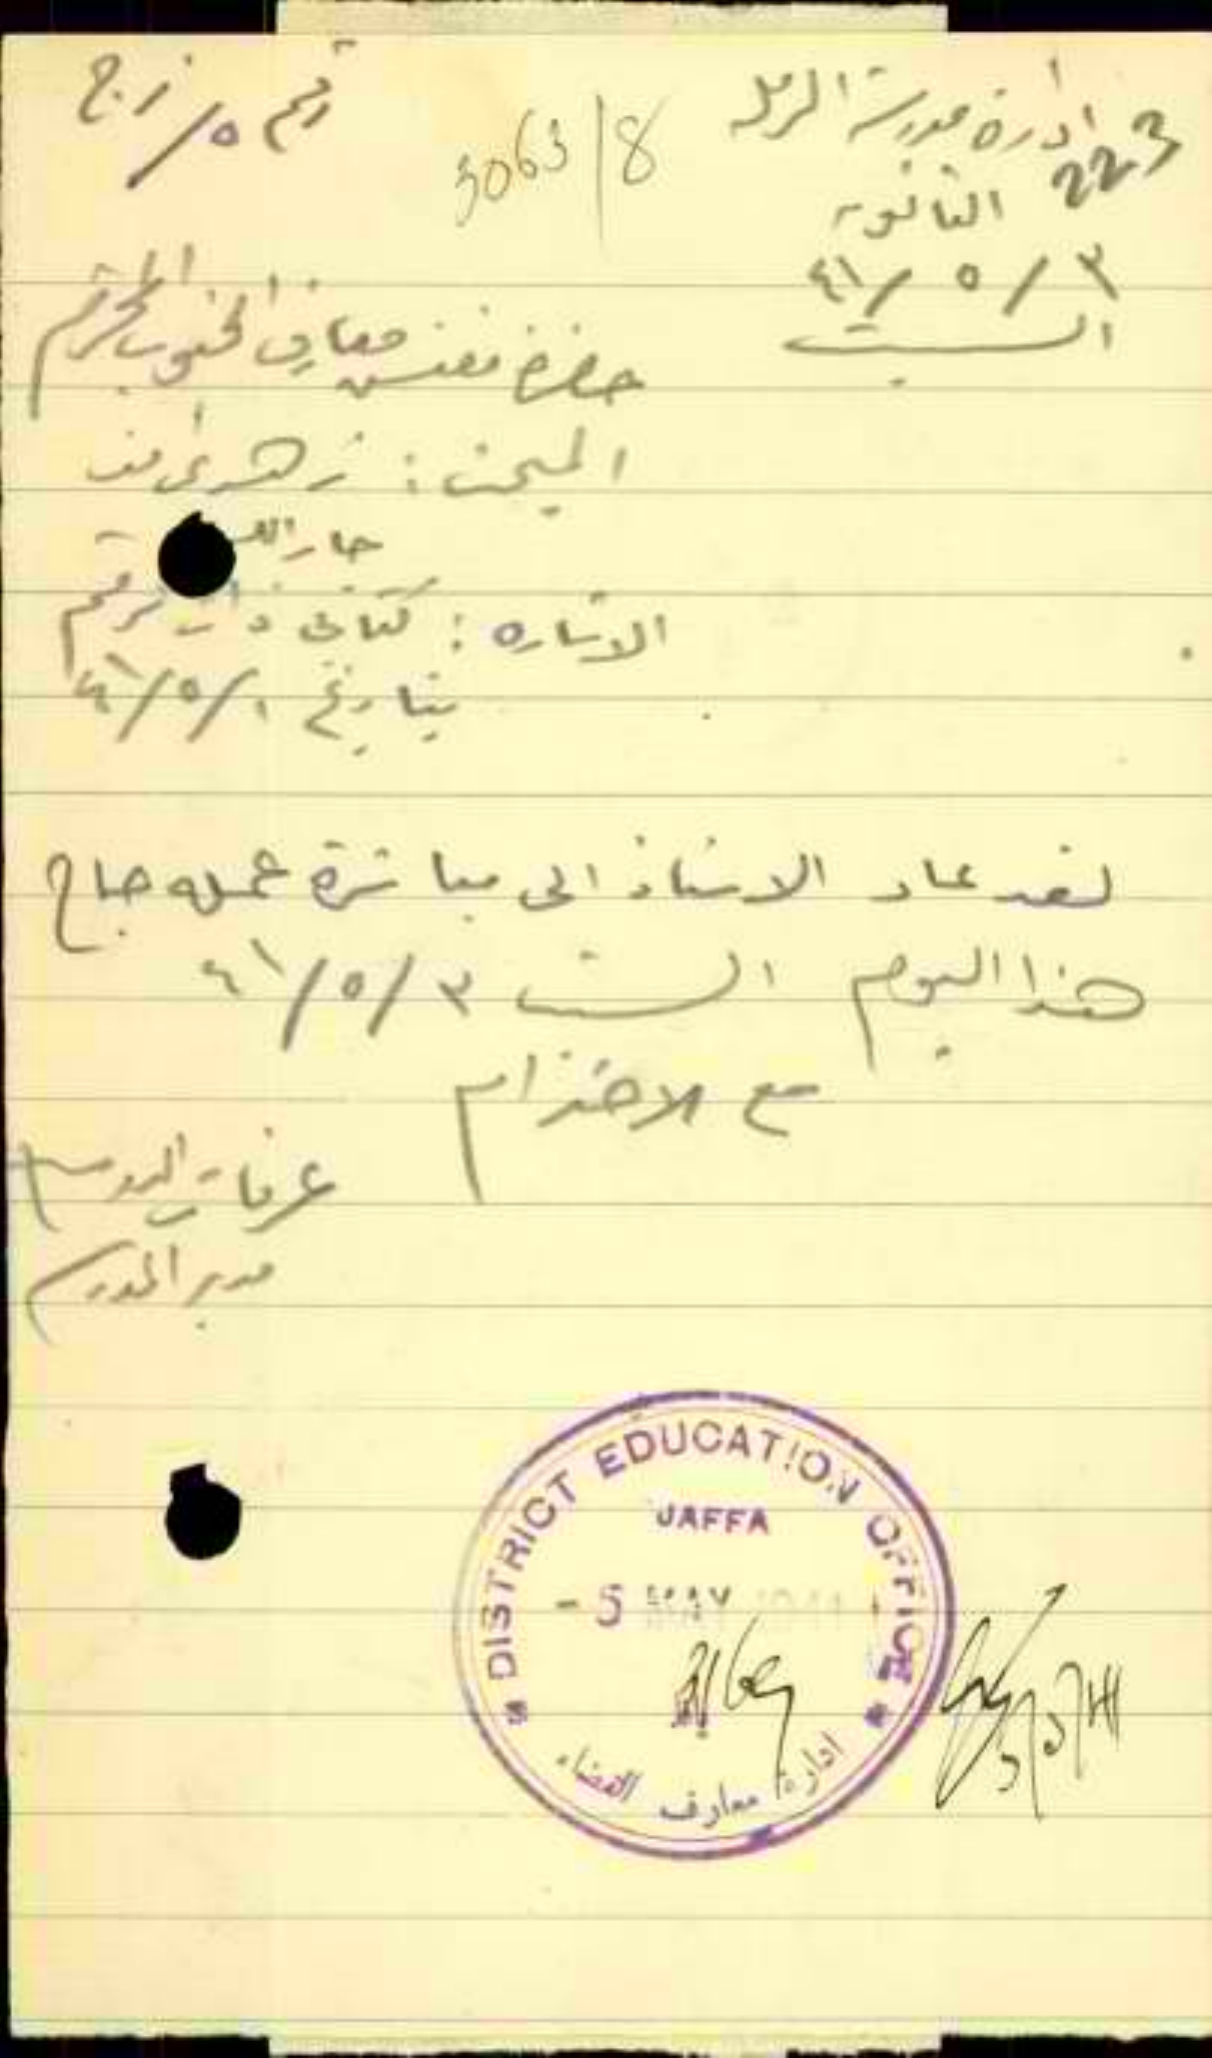 ادارة مدرسة الرملة
223
الثانوية
٣ / ٥ / ٤١
السبت
رقم ٥/ز ج
3063/8
حضرة مفتش معارف الجنوب المحترم
المبحث: زهدي افند
جار الله
الاشارة: كتابي ذات رقم
بتاريخ ١/٥/٤١
لقد عاد الاستاذ الى مباشرة عمله صباح
هذا اليوم السبت ٣/٥/٤١
مع الاحترام
عرفات
مدير المدرسة
DISTRICT EDUCATION OFFICE
JAFFA
- 5 MAY 1941
ادارة معارف القضاء